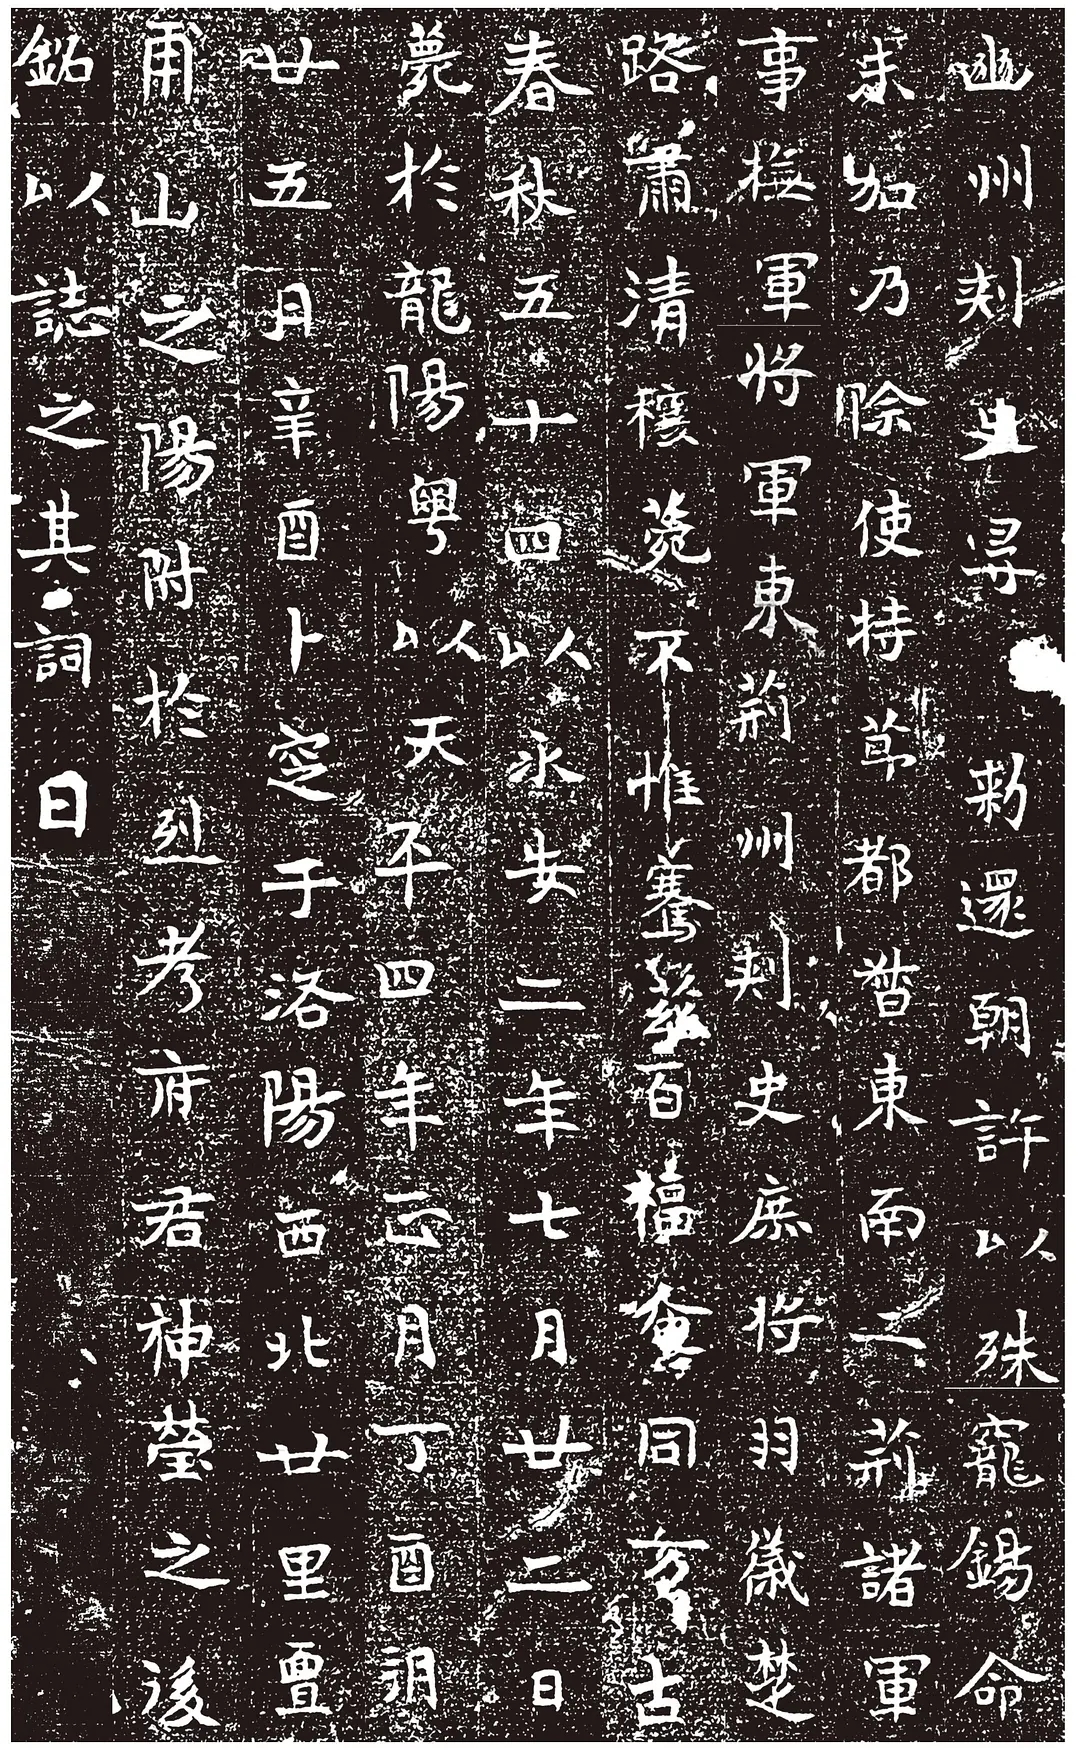 幽州刺史尋　勑還朝許以殊寵錫命
未加乃除使持莭都督東南二荊諸軍
事撫軍將軍東荊州刾史庶將羽儀楚
路肅清穰菀不惟騫發百櫝奮同亥古
春秋五十四以永安二年七月廿二日
薨於龍陽粵以天平四年正月丁酉朔
廿五日辛酉卜窆于洛陽西北廿里亶
甫山之陽附於烈考府君神瑩之後
銘以誌之其詞曰